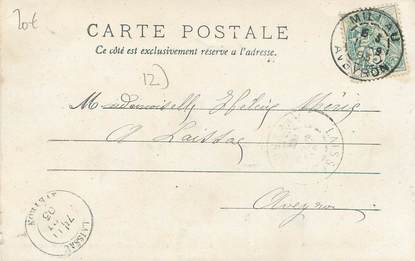 20€
CARTE POSTALE
Ce côté est exclusivement réservé à l'adresse.
MILLAU
AVEYRON
12)
Mademoiselle
A Laissac
Aveyron
LAISSAC
AVEYRON